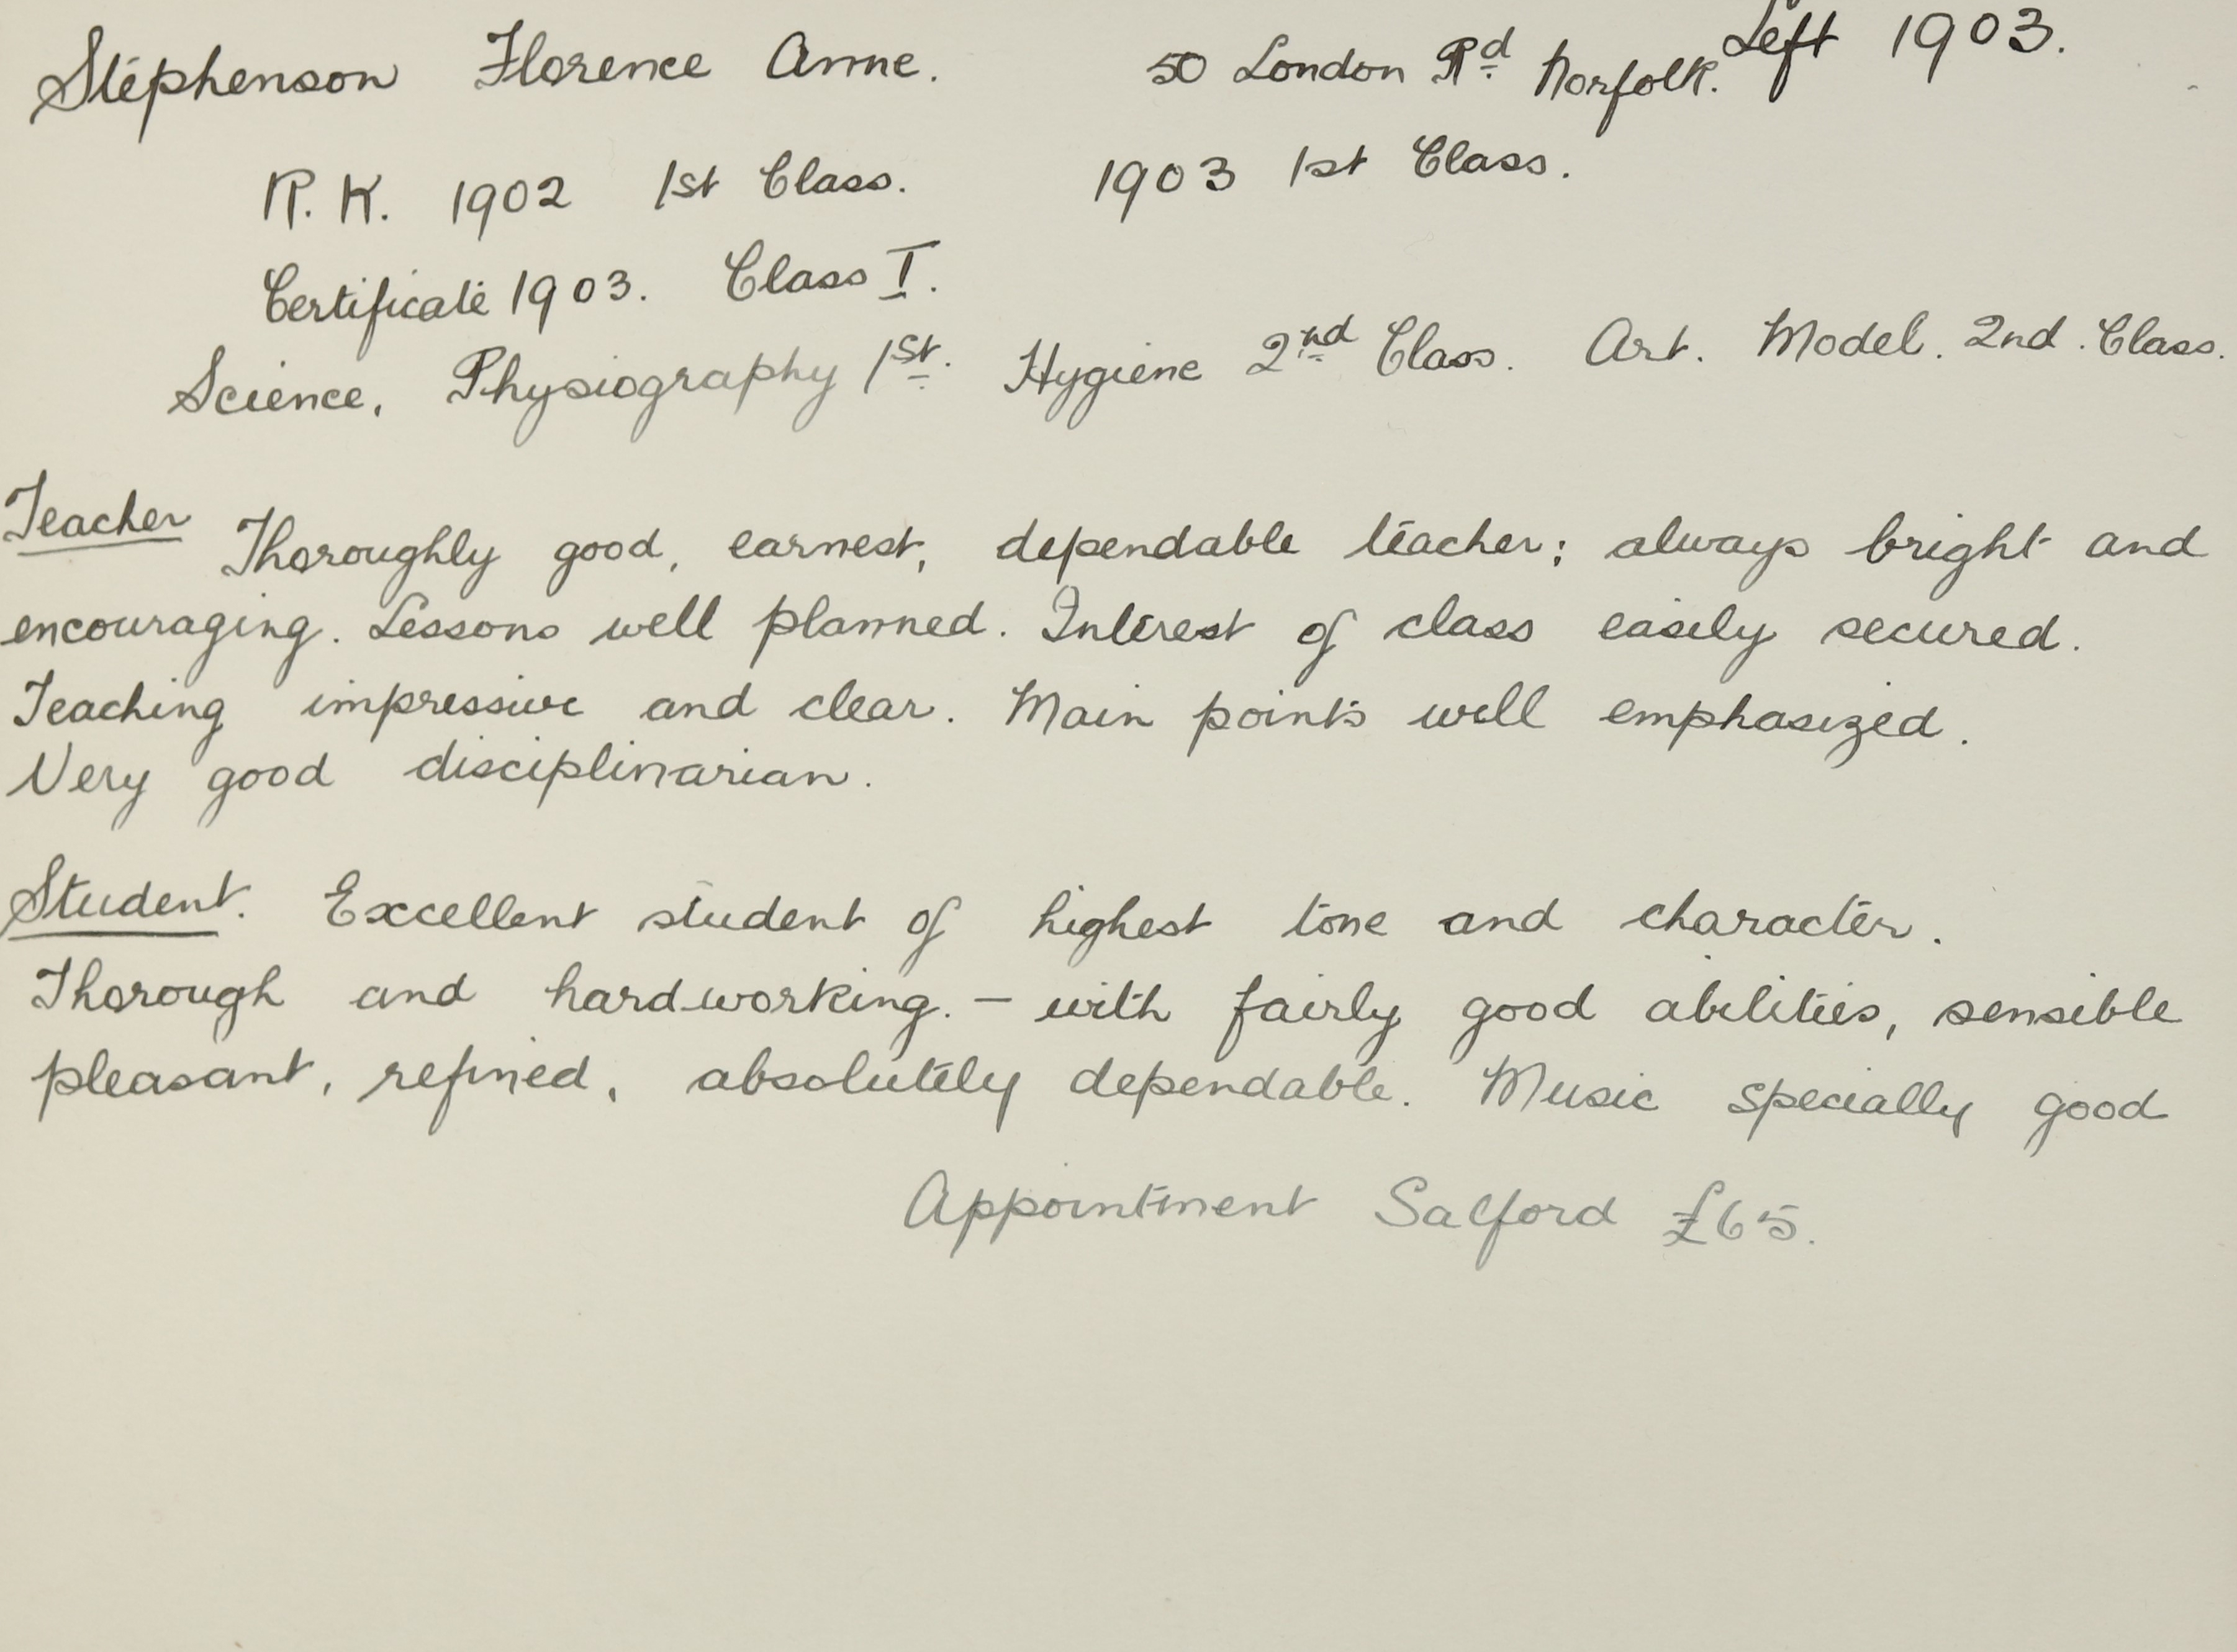 Stephenson Florence Anne. 50 London Rd Norfolk. Left 1903.
R. K. 1902 1st Class. 1903 1st Class.
Certificate 1903. Class I.
Science, Physiography 1st. Hygiene 2nd Class. Art. Model. 2nd. Class.
Teacher Thoroughly good, earnest, dependable teacher; always bright and
encouraging. Lessons well planned. Interest of class easily secured.
Teaching impressive and clear. Main points well emphasized.
Very good disciplinarian.
Student. Excellent student of highest tone and character.
Thorough and hardworking. – with fairly good abilities, sensible
pleasant, refined, absolutely dependable. Music specially good
Appointment Salford £65.